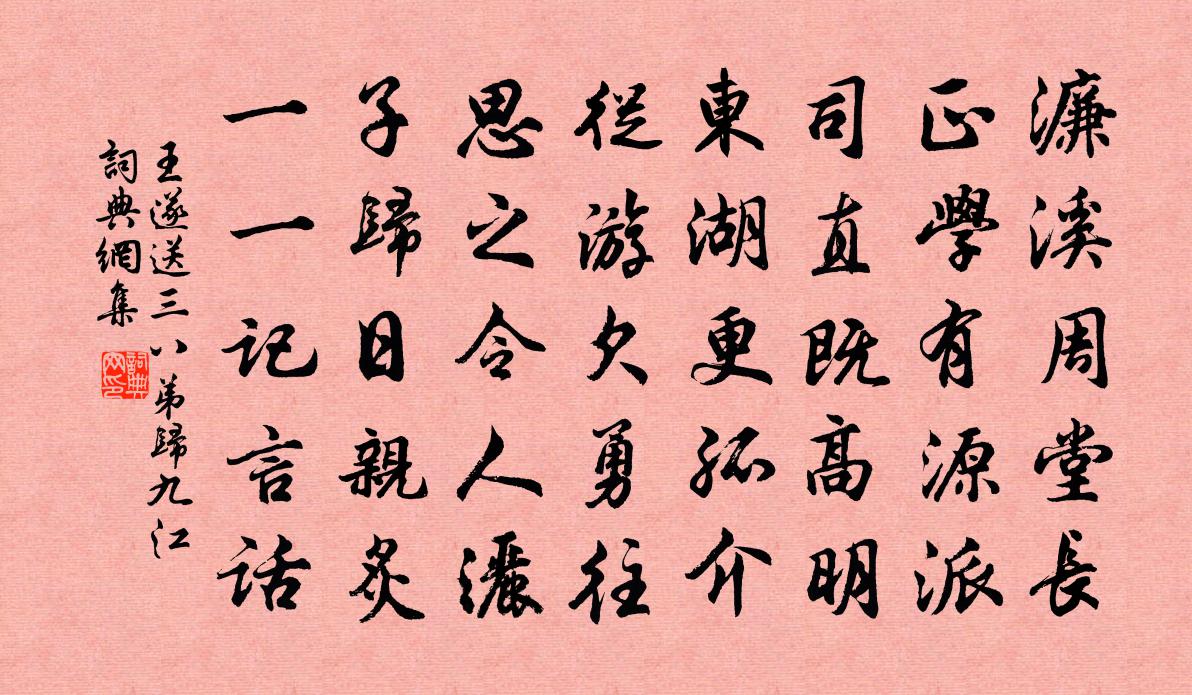 濂溪周堂長
正學有源派
司直既高明
東湖更孤介
從游欠勇往
思之令人灑
子歸日親炙
一一记言话
王遂送三八弟歸九江
詞典網集
詞典网印